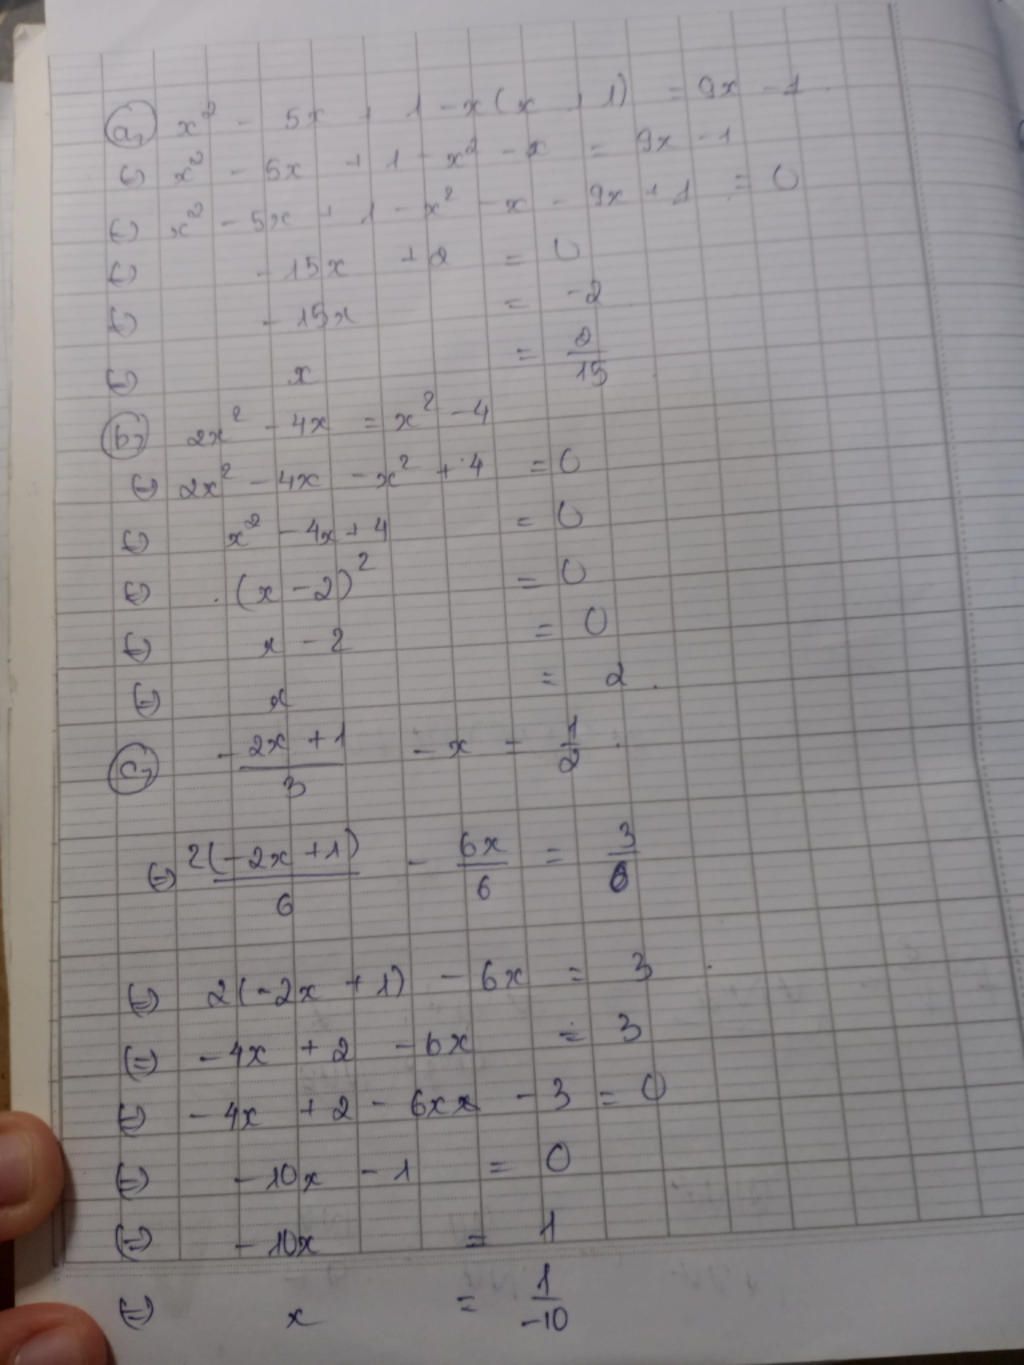 a) x² - 5x + 1 - x(x + 1) = 9x - 1
⇔ x² - 5x + 1 - x² - x = 9x - 1
⇔ x² - 5x + 1 - x² - x - 9x + 1 = 0
⇔ - 15x + 2 = 0
⇔ - 15x = -2
⇔ x = 2/15
b) 2x² - 4x = x² - 4
⇔ 2x² - 4x - x² + 4 = 0
⇔ x² - 4x + 4 = 0
⇔ (x - 2)² = 0
⇔ x - 2 = 0
⇔ x = 2
c) (-2x + 1)/3 - x = 1/2
⇔ 2(-2x + 1)/6 - 6x/6 = 3/6
⇔ 2(-2x + 1) - 6x = 3
⇔ - 4x + 2 - 6x = 3
⇔ - 4x + 2 - 6x - 3 = 0
⇔ - 10x - 1 = 0
⇔ - 10x = 1
⇔ x = 1/-10